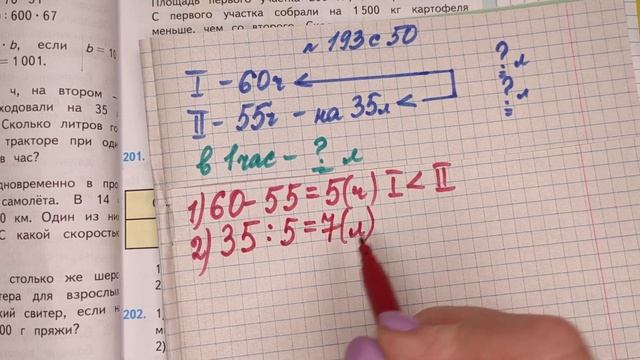 : 600 · 67
· b, если
= 1001.
b = 10
Площадь первого участка
С первого участка собрали на 1500 кг картофеля
меньше, чем со второго.
ч, на втором –
ходовали на 35
Сколько литров го
тракторе при оди
в час?
201.
дновременно в про
самолёта. В 14
0 км. Один из ни
С какой скорость
столько же шерс
тера для взрослы
кий свитер, если н
00 г пряжи?
202. 1)
м
2)
№ 193 с 50
I – 60ч
? л
II – 55ч – на 35л <
? л
в 1 час – ? л
1) 60 – 55 = 5(ч) I < II
2) 35 : 5 = 7(л)